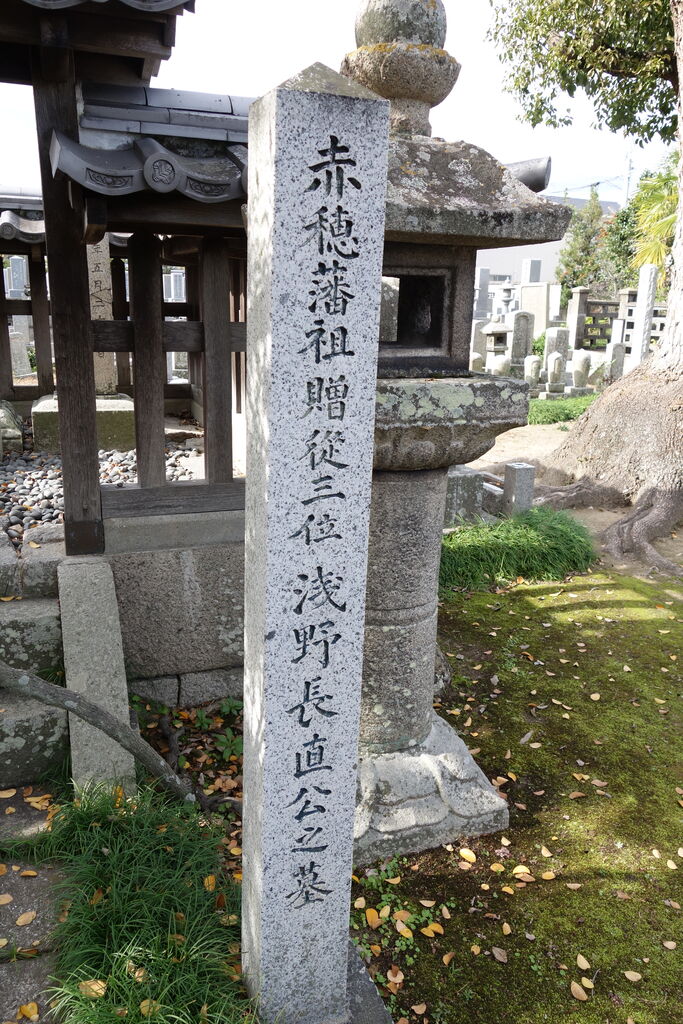 赤穂藩祖贈従三位浅野長直公之墓
五月